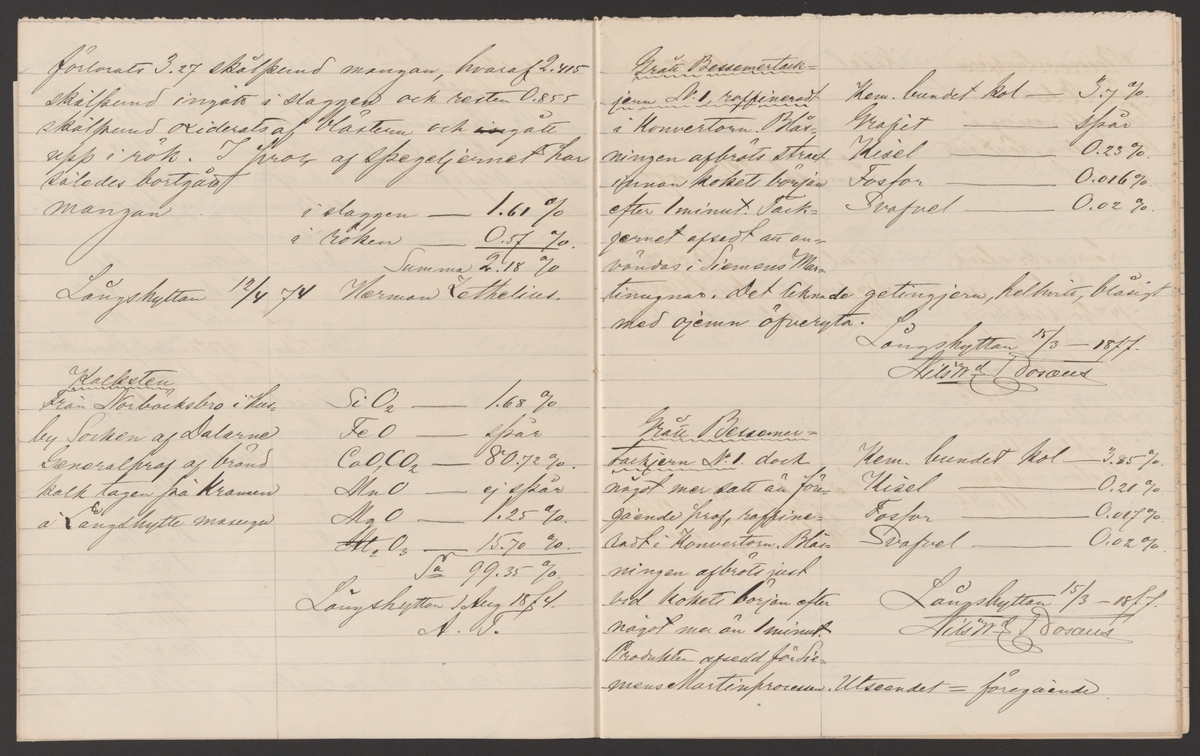 förlorats 3.27 skålpund mangan, hvaraf 2.415
skålpund ingått i slaggen och resten 0.855
skålpund oxiderats af blästern och gått
upp i rök. I prof af spegeljernet har
således bortgått
mangan i slaggen — 1.61 %
i röken — 0.57 %.
Summa 2.18 %
Långshyttan 12/4 74 Herman Zethelius.
Kalksten
Från Norbäcksbro i Hus-
by Socken af Dalarne
Generalprof af bränd
kalk tagen på Kransen
a Långshytte masugn
SiO2 — 1.68 %
FeO — spår
CaO,CO2 — 80.72 %.
MnO — ej spår
MgO — 1.25 %.
Al2O3 — 15.70 %.
Sa 99.35 %.
Långshyttan 1 Aug 1874.
A. T.
Grått Bessemertack-
jern No 1, raffineradt
i Konvertorn. Blås-
ningen afbröts straxt
innan kokets början
efter 1 minut. Tack-
jernet afsedt att an-
vändas i Siemens Mar-
tinugnar. Det liknade getingjern, helhvitt, blåsigt
med ojemn öfveryta.
Kem. bundet kol — 3.7 %.
Grafit — spår
Kisel — 0.23 %.
Fosfor — 0.016 %.
Svafvel — 0.02 %.
Långshyttan 15/3 — 1877.
Nils Wd Rosæus
Grått Bessemer-
tackjern No 1. dock
något mer satt än före-
gående prof, raffine-
radt i Konvertorn. Blås-
ningen afbröts just
vid kokets början efter
något mer än 1 minut.
Produkten afsedd för Sie-
mens Martinprocessen. Utseendet = föregående
Kem. bundet kol — 3.85 %.
Kisel — 0.20 %.
Fosfor — 0.017 %.
Svafvel — 0.02 %.
Långshyttan 15/3 — 1877.
Nils Wd Rosæus